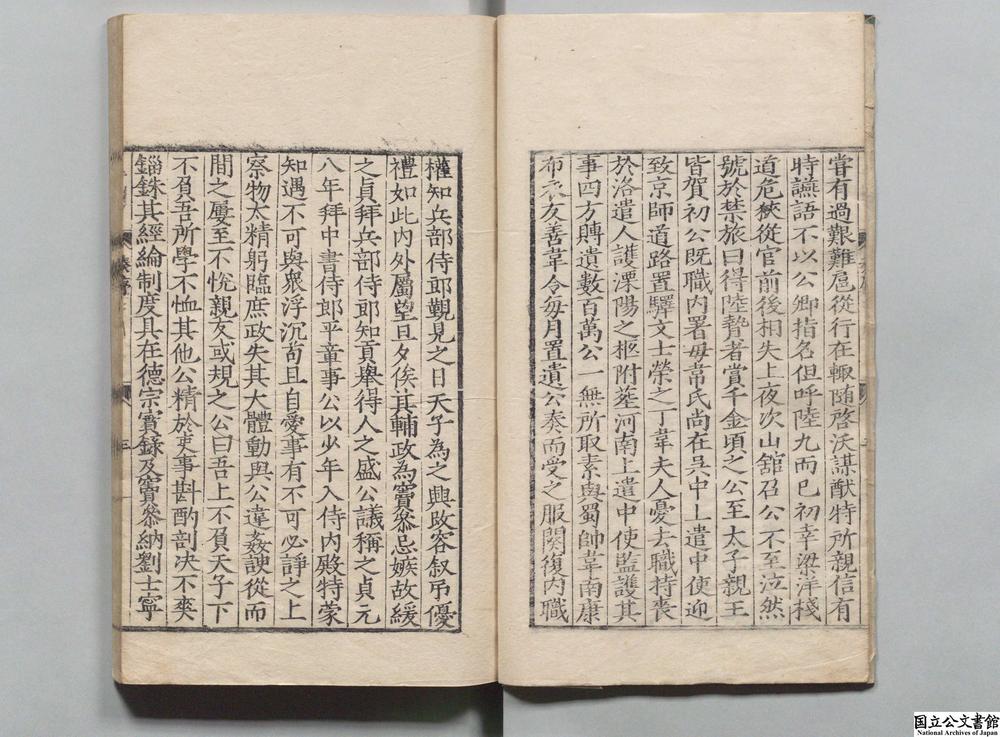 嘗有過艱難扈從行在輙随啓沃謀猷特所親信有
時讌語不以公卿指名但呼陸九而已初幸梁洋棧
道危狹從官前後相失上夜次山舘召公不至泣然
號於禁旅曰得陸贄者賞千金頃之公至太子親王
皆賀初公既職内署母韋氏尚在吳中上遣中使迎
致京師道路置驛文士榮之丁韋夫人憂去職持喪
於洛遣人護溧陽之柩附葬河南上遣中使監護其
事四方賻遺數百萬公一無所取素與蜀帥韋南康
布衣友善韋令每月置遺公奏而受之服闋復内職
權知兵部侍郎覲見之日天子為之興改容叙吊優
禮如此内外屬望旦夕俟其輔政為竇叅忌嫉故緩
之貞拜兵部侍郎知貢舉得人之盛公議稱之貞元
八年拜中書侍郎平章事公以少年入侍内殿特蒙
知遇不可與衆浮沉苟且自愛事有不可必諍之上
察物太精躬臨庶政失其大體動與公違姦諛從而
間之屢至不悅親友或規之公曰吾上不負天子下
不負吾所學不恤其他公精於吏事斟酌剖决不爽
錙銖其經綸制度具在德宗實録及竇叅納劉士寧
三
國立公文書館
National Archives of Japan